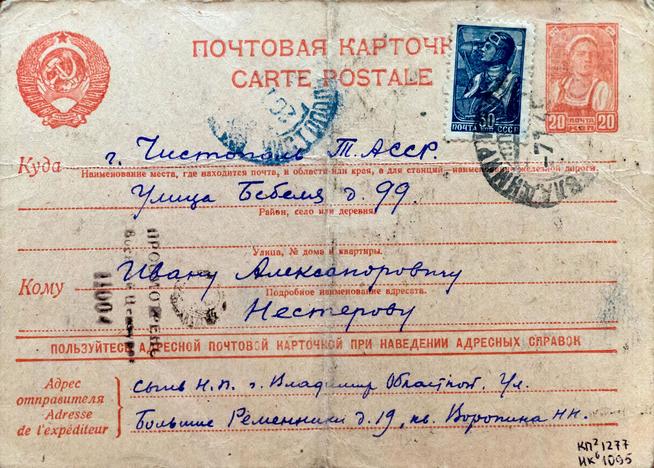 ПОЧТОВАЯ КАРТОЧК
CARTE POSTALE
30
ПОЧТА СССР
20 ПОЧТА 20
КОП
Куда г. Чистополь Т.АССР.
Наименование места, где находится почта, и области или края, а для станции - наименование железной дороги
Улица Бебеля д. 99
Район, село или деревня
Улица, № дома и квартиры.
Кому Ивану Александровичу
Подробное наименование адресата.
Нестерову
ПРОСМОТРЕНО
11004
ПОЛЬЗУЙТЕСЬ АДРЕСНОЙ ПОЧТОВОЙ КАРТОЧКОЙ ПРИ НАВЕДЕНИИ АДРЕСНЫХ СПРАВОК
Адрес отправителя
Adresse de l'expéditeur
г. Владимир Областной. Ул.
Большие Ременники д. 19, кв. Воронина Н.Н.
КП² 1277
НК⁶ 1095